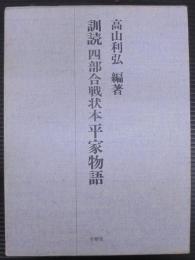 高山利弘 編著
訓読 四部合戦状本平家物語